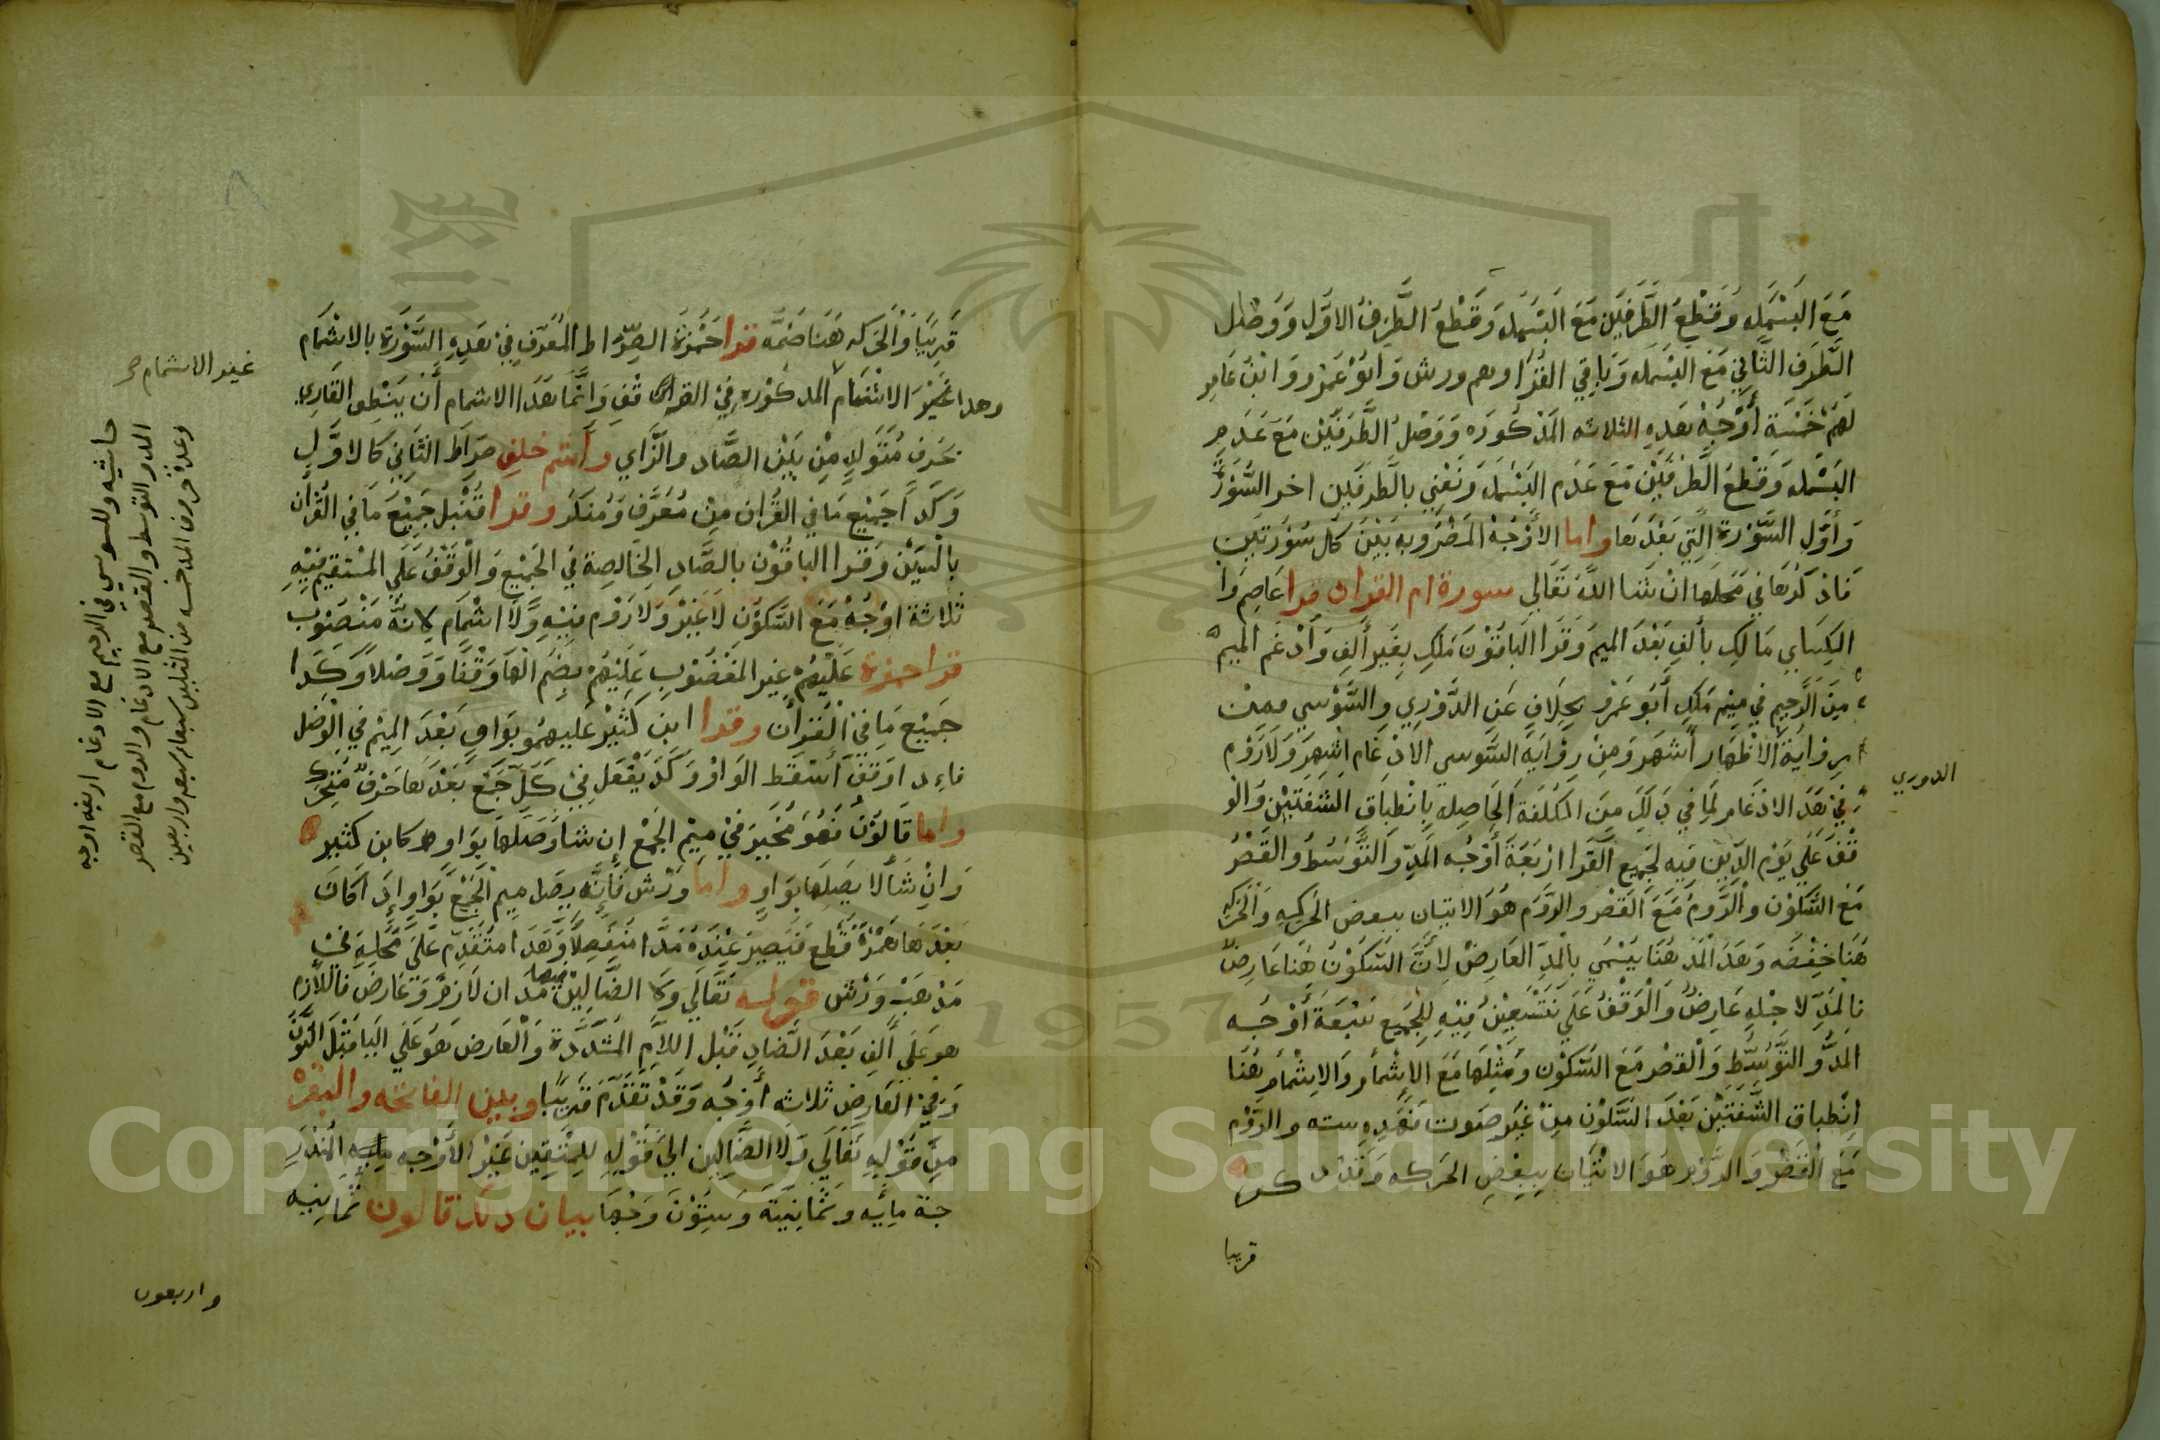 مَعَ البَسْمَله وَقَطْعَ الطَّرَفَيْن مَعَ البَسْمَله وَقَطْعُ الطَّرَفُ الاوَّلِ وَوَصْل
الطَّرَفِ الثَّانِي مَعَ البَسْمَله وَبَاقِي القُرَّا وهم ورش وَابُوْعَمْرو وَابْنُ عَامِرٍ
لَهُمْ خَمْسَة أَوْجُهْ هَذِهِ الثلاثه المَذْكُورَه وَوَصْلُ الطَّرَفَيْن مَعَ عَدَمِ
البَسْمله وَقَطْعُ الطَّرَفَيْنْ مَعَ عَدَم البَسْمله وَنَعْنِي بالطَّرَفَيْن اخر السُّوْرَةُ
وَأَوَّلِ السُّوْرَة الَّتِي بَعْدَهَا واما الأَوْجُهْ المَضْرُوبه بَيْنَ كُل سُوْرَتَيْن
فَاذكرُهَا فِي مَحَلِهَا انْ شَا اللهُ تَعَالى سورة ام القران قرا عَاصِم وا
الكِسَاي مَالِك بألفِ بَعْدَ الميمَ وَقَرَا البَاقُوْنَ مَلِكِ بِغَيرِ أَلِفِ وَأَدْغَمَ المِيْمْ
مِنَ الرَّحِيمِ فِي مِيْمِ مَلِكِ أَبُو عَمْرو بِخِلَافٍ عَنِ الدُّوْرِي وَالسُّوْسِي فمِنْ
رِوْايَة الاظْهَار أَشْهَر وَمِنْ رِوْايَة السُّوسي الادْغَام اشهَرَ وَلَا رَوْم
فِي هَذَ الادْغَام لِمَا فِي ذَلِكَ مِنَ الكُلْفَة الحَاصِله بِانْطِبَاقِ الشَفَتَيْنِ وَالْو
الدوري
قْفَ عَلَي يَوْمِ الدِّيْنِ فِيه لِجَمِيعِ القُرَا ارْبَعَةَ أَوْجُه المَدِّ والتَّوَسُّطَ والقَصْرُ
مَعَ السُّكُوْن والرَّوْمُ مَعَ القَصْرِ والرَّوْم هُوَ الاتيَان ببعض الحَركه وَالحَركه
هَنَا خِفْضَه وَهَذَ المَدُ هُنَا يُسْمَي بِالمَدِّ العَارِضْ لِأَنَّ السُّكُوْنُ هُنَا عَارِضٌ
فَالمَدِّ لاجْلهِ عَارِضٌ وَالْوَقْفُ عَلَي نَسْتَعِيْنُ فِيْهِ لِلْجَمِيع سَبْعَةُ أَوْجُه
المَدُّ وَالتَّوَسُّطِ وَالْقَصْر مَعَ السُّكُوْن وَمِثْلهَا مَعَ الإِشْمَام وَالاشْمَامِ هُنَا
انْطِبَاق الشَّفَتَيْنِ بَعْدَ السُّكُوْن مِنْ غَيْرِ صَوت فَهَذِهِ سته والرَّوْم
مَعَ القَصْر وَالرَّوْمِ هُوَ الاتْيَان بِبَعْضِ الحَركه وَقَدْ ذكر
قريبا
قَرِيْبًا وَالْحَركه هَنَا ضَمَّه قرا حَمْزَةُ الصِّرَاط المُعَرَّفِ فِيْ هَذِهِ السُّوْرَةِ بالاشْمَام
وهذا غَيْرَ الاشْمَام المذكُوْر فِيْ الوقف وَانَّمَا هَذَا الاشمام أَنْ يَنْطِقِ القَارِي
غير الاشمام صح
بحَرفٍ مُتَوَلِدٍ مِنْ بَيْن الصَّاد والزَّاي وأشم خلف صِرَاطَ الثَّانِي كالاوَّلِ
وَكَذَ اجَمِيْع مَا فِي القُرْان مِنْ مُعَرَّفٍ وَمُنَكَّر وقرا قُنْبل جَمِيْعَ مَا فِي القُرْان
بِالسِّيْنِ وَقَرا البَاقُوْن بالصَّادِ الخَالِصِة فِي الجَمِيْع وَالْوَقْفُ عَلَي المُسْتَقِيْم فِيْهِ
ثلاثة اوْجُهْ مَعَ السُّكُوْنِ لَا غَيْرُ وَلَا رَوْم فِيْهِ وَلَا اشْمَام لِانَّهُ مَنْصُوْب
قرا حمزة عَلَيْهُمْ غيرِ المَغْضُوْبِ عَلَيْهُمْ بِضَمِّ الْهَا وَقْفًا وَوَصْلاً وَكَذَا
جَمِيْعَ مَا فِيْ الْقُرْأَن وقرا ابن كثَيْر عليهمُو بِوَاوٍ بَعْدَ المِيْمْ فِي الْوَصْل
فاءِذ اوَقَفَ أَسْقَطَ الوَاوْ وَكَذَ يَفْعَل فِيْ كُلِّ جَمْعٍ بَعْدَهَا حَرْفٌ مُتَحَرِّكٌ
واما قَالَوْنُ فَهُوَ مُخَيَّر فِيْ مِيْمِ الجَمْع إن شا وَصَلَهَا بِوَاوٍ كابن كثير
وَانْ شَا لا يَصِلهَا بِوَاوٍ واما ورْش فَإِنَّه يصِل مِيم الْجَمْع بِوَاوٍ إِذَ اكَانَ
بَعْدَهَا هَمْزَةُ قَطْعٍ فَيَصِيرَ عِنْدَهُ مَدَّا مُنفَصِلًا وَهَذَ امتَقَدِّم عَلَيَ مَحَلِهِ فِيْ
مَذهَبْ وَرْش قوله تَعَالَي وَلا الضَّالِيْن فيها مَدّان لَازمٌ وَعَارضٌ فاللَّازم
هو عَلَي أَلفٍ بَعْدَ الضَّادِ قَبْل اللاَّمِ المُشَدَّدَة وَالْعَارض هُوَ عَلَي اليَا قَبْلَ النُّوْن
وَفِي العَارِض ثلاثه أَوْجُه وَقَدْ تَقَدَّمَ قَرِيْبًا وبين الفاتحه والبقرة
مِنْ قَوْلِهِ تَعَالَي وَلَا الضَّالِين الي قَوْلِهِ للمُتقِين غَيْرُ الأَوْجه المُنْدَرِ
جة مايَه وَثَمَانِيَةَ وَسِتُوْنَ وَجْهَا بيان ذلك قالون ثَمانِيه
واربعون
حاشيه وللسوسي في الرحيم مع الادغام اربعه اوجه
المد والتوسط والقصر مع الادغام والروم مع القصر